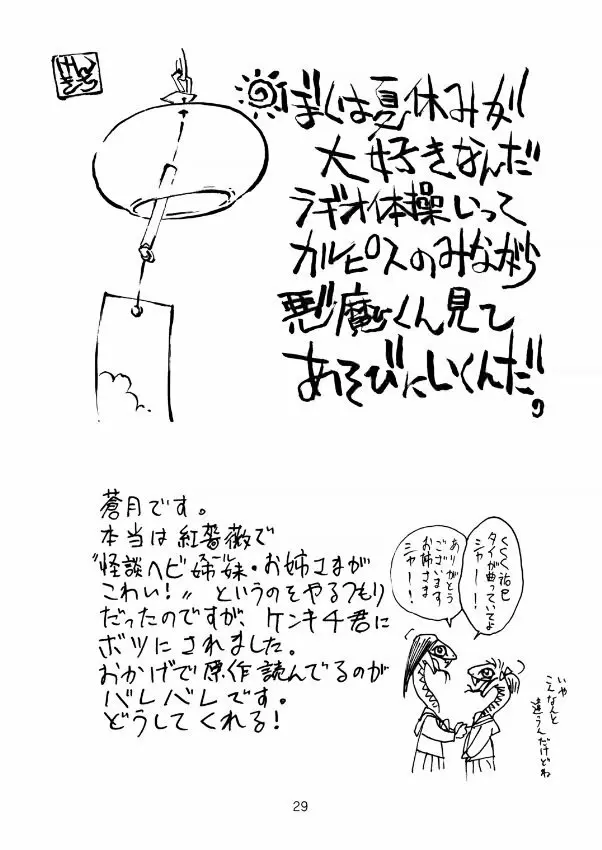 ぼくは夏休みが
大好きなんだ
ラヂオ体操いって
カルピスのみながら
悪魔くん見て
あそびにいくんだ。
蒼月です。
本当は紅薔薇で
"怪談ヘビ姉妹・お姉さまが
こわい!〟というのをやるつもり
だったのですが、ケンキチ君に
ボツにされました。
おかげで原作読んでるのが
バレバレです。
どうしてくれる!
くくく祐巳
タイが曲っていてよ
シャーー!
ありがとう
ございます
お姉さま
シャーー!
いや
こんなんと
違うんだけどね
29